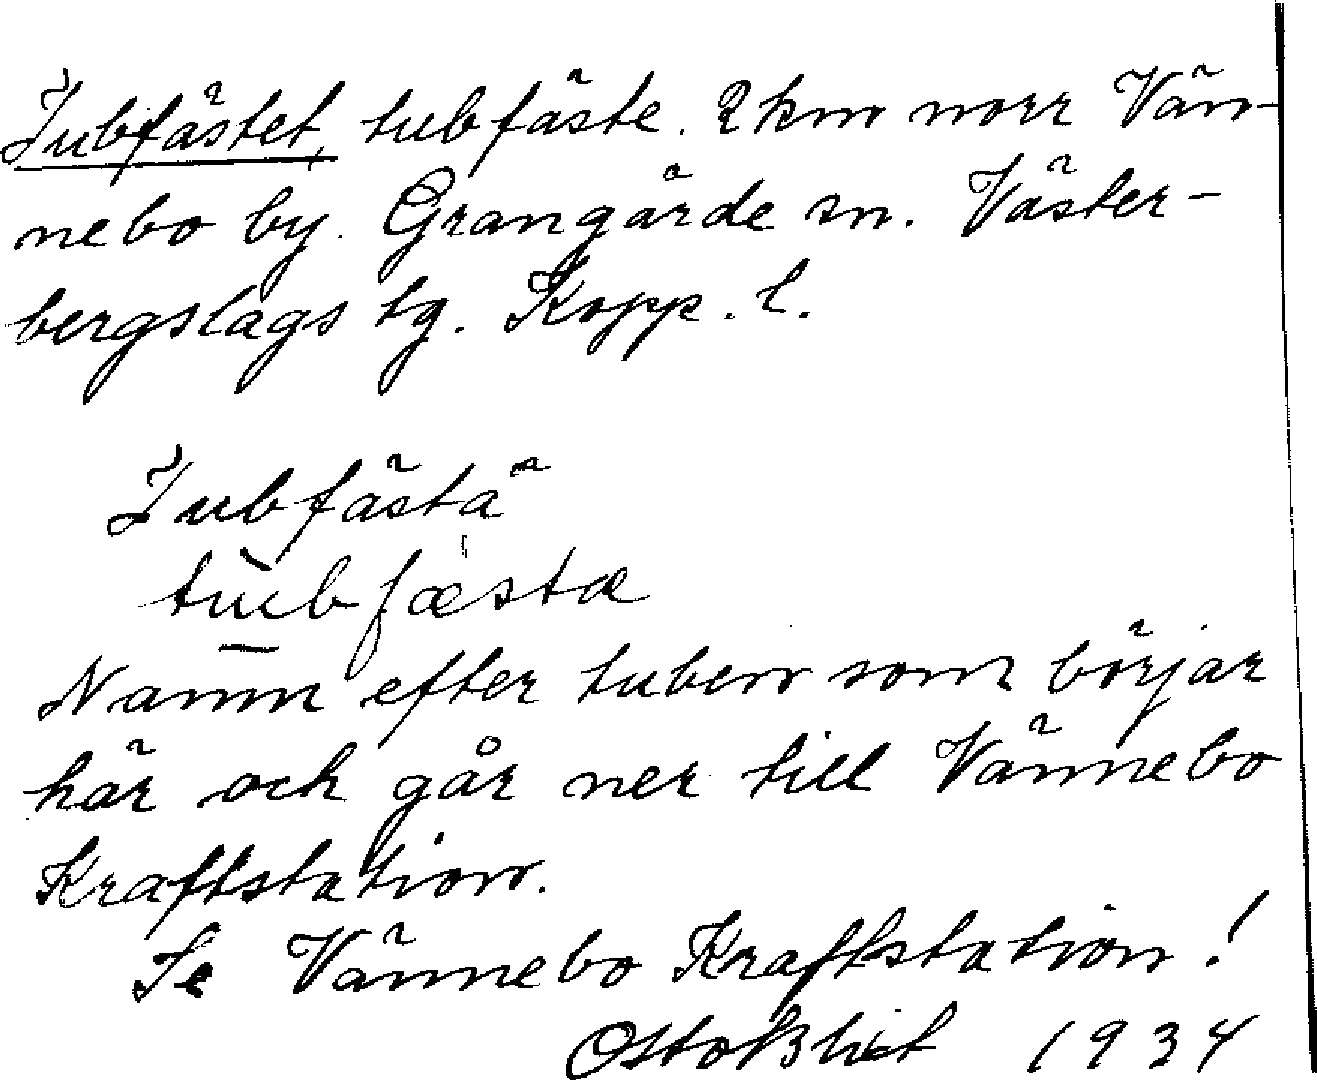 Tubfästet, tubfäste. 2 km norr Vän-
nebo by. Grangärde sn. Väster-
bergslags tg. Kopp. l.
Tubfästä
tubfæstæ
Namn efter tuben som börjar
här och går ner till Vännebo
Kraftstation.
Se Vännebo Kraftstation!
Otto Blixt 1934